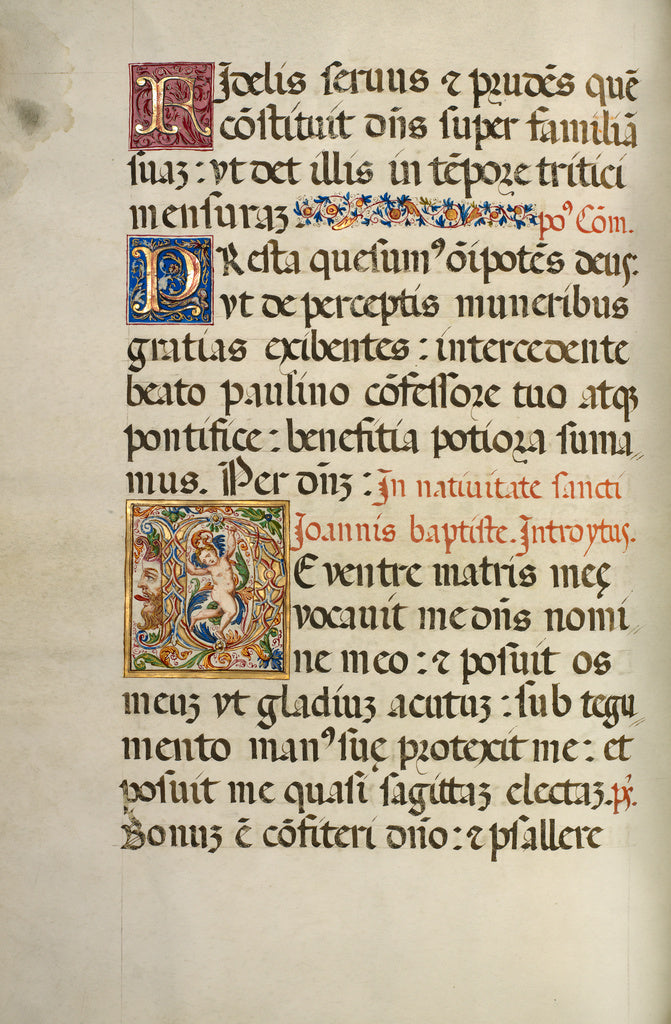 FIdelis seruus ⁊ prudēs quē
cōstituit dn̄s super familiā
suaꝫ : vt det illis in tēpore tritici
mensuraꝫ poꝰ Cōm.
PResta quesumꝰ oīpotēs deus.
vt de perceptis muneribus
gratias exibentes : intercedente
beato paulino cōfessore tuo atqꝫ
pontifice : benefitia potiora suma„
mus. Per dn̄ꝫ : In natiuitate sancti
Joannis baptiste. Introytus.
DE ventre matris meę
vocauit me dn̄s nomi„
ne meo : ⁊ posuit os
meuꝫ vt gladiuꝫ acutuꝫ : sub tegu„
mento manꝰ suę protexit me : et
posuit me quasi sagittaꝫ electaꝫ. ps.
Bonuꝫ ē cōfiteri dn̄o : ⁊ psallere